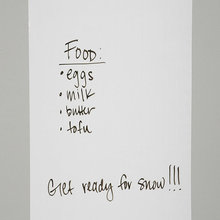 Food:
• eggs
• milk
• butter
• tofu
Get ready for snow!!!